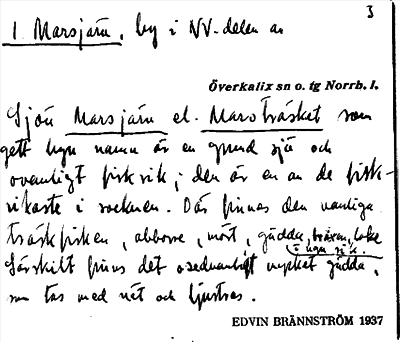 3
1. Marsjärv, by i NV-delen av
Överkalix sn o. tg Norrb. l.
Sjön Marsjärv el. Marsträsket som
gett byn namn är en grund sjö och
ovanligt fiskrik; den är en av de fisk-
rikaste i socknen. Där finnas den vanliga
träskfisken, abborre, mört, gädda, braxen, lake
o. ngn sik.
Särskilt finns det osedvanligt mycket gädda,
som tas med nät och ljustras.
EDVIN BRÄNNSTRÖM 1937